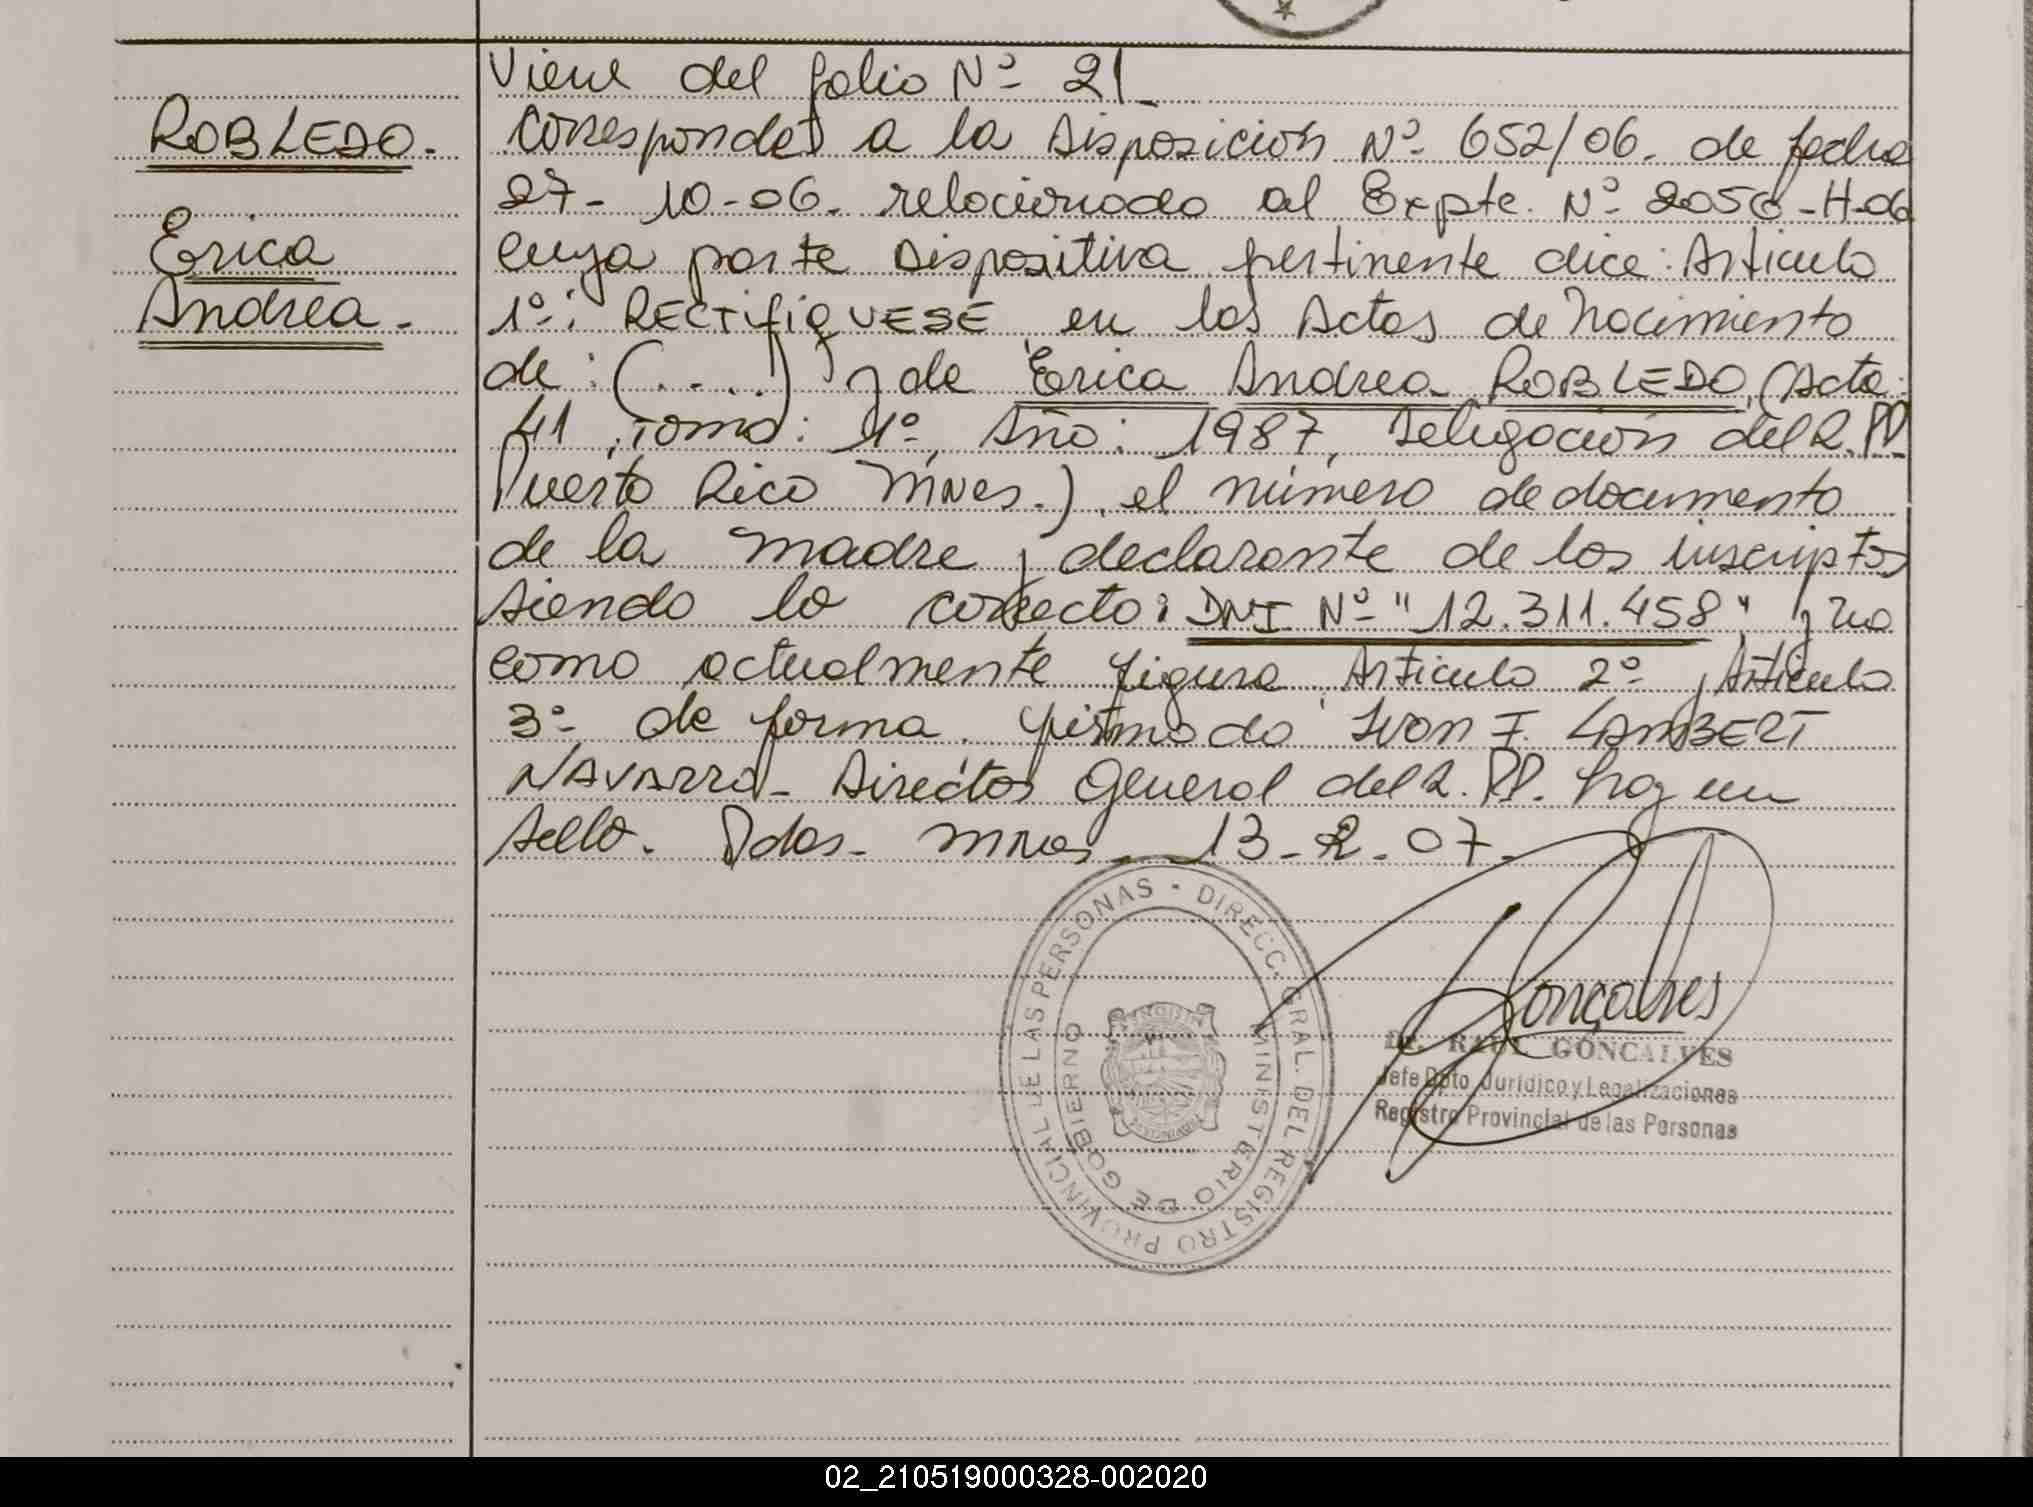 Viene del folio Nº 21_
ROBLEDO.
Corresponde a la Disposición Nº 652/06. de fecha
27-10-06. relacionado al Expte. Nº 2056-H-06
Erica
cuya parte Dispositiva pertinente dice: Articulo
Andrea.
1º: RECTIFIQUESE en las Actas de Nacimiento
de: (....) y de Erica Andrea ROBLEDO (Acta:
41, Tomo: 1º, Año: 1987, Delegación del R.PP.
Puerto Rico Mnes.), el número de documento
de la madre y declarante de los inscriptos
siendo lo correcto: DNI Nº "12.311.458" y no
como actualmente figura. Articulo 2º y Articulo
3º de forma. firmado Ivon I. LAMBERT
NAVARRO- Director General del R.PP. hay un
sello. Pdas. Mnes. 13-2-07.
DIRECC. GRAL. DEL REGISTRO PROVINCIAL DE LAS PERSONAS -
MINISTERIO DE GOBIERNO
Gonçalves
Dr. RAUL GONCALVES
Jefe Dpto. Jurídico y Legalizaciones
Registro Provincial de las Personas
02_210519000328-002020